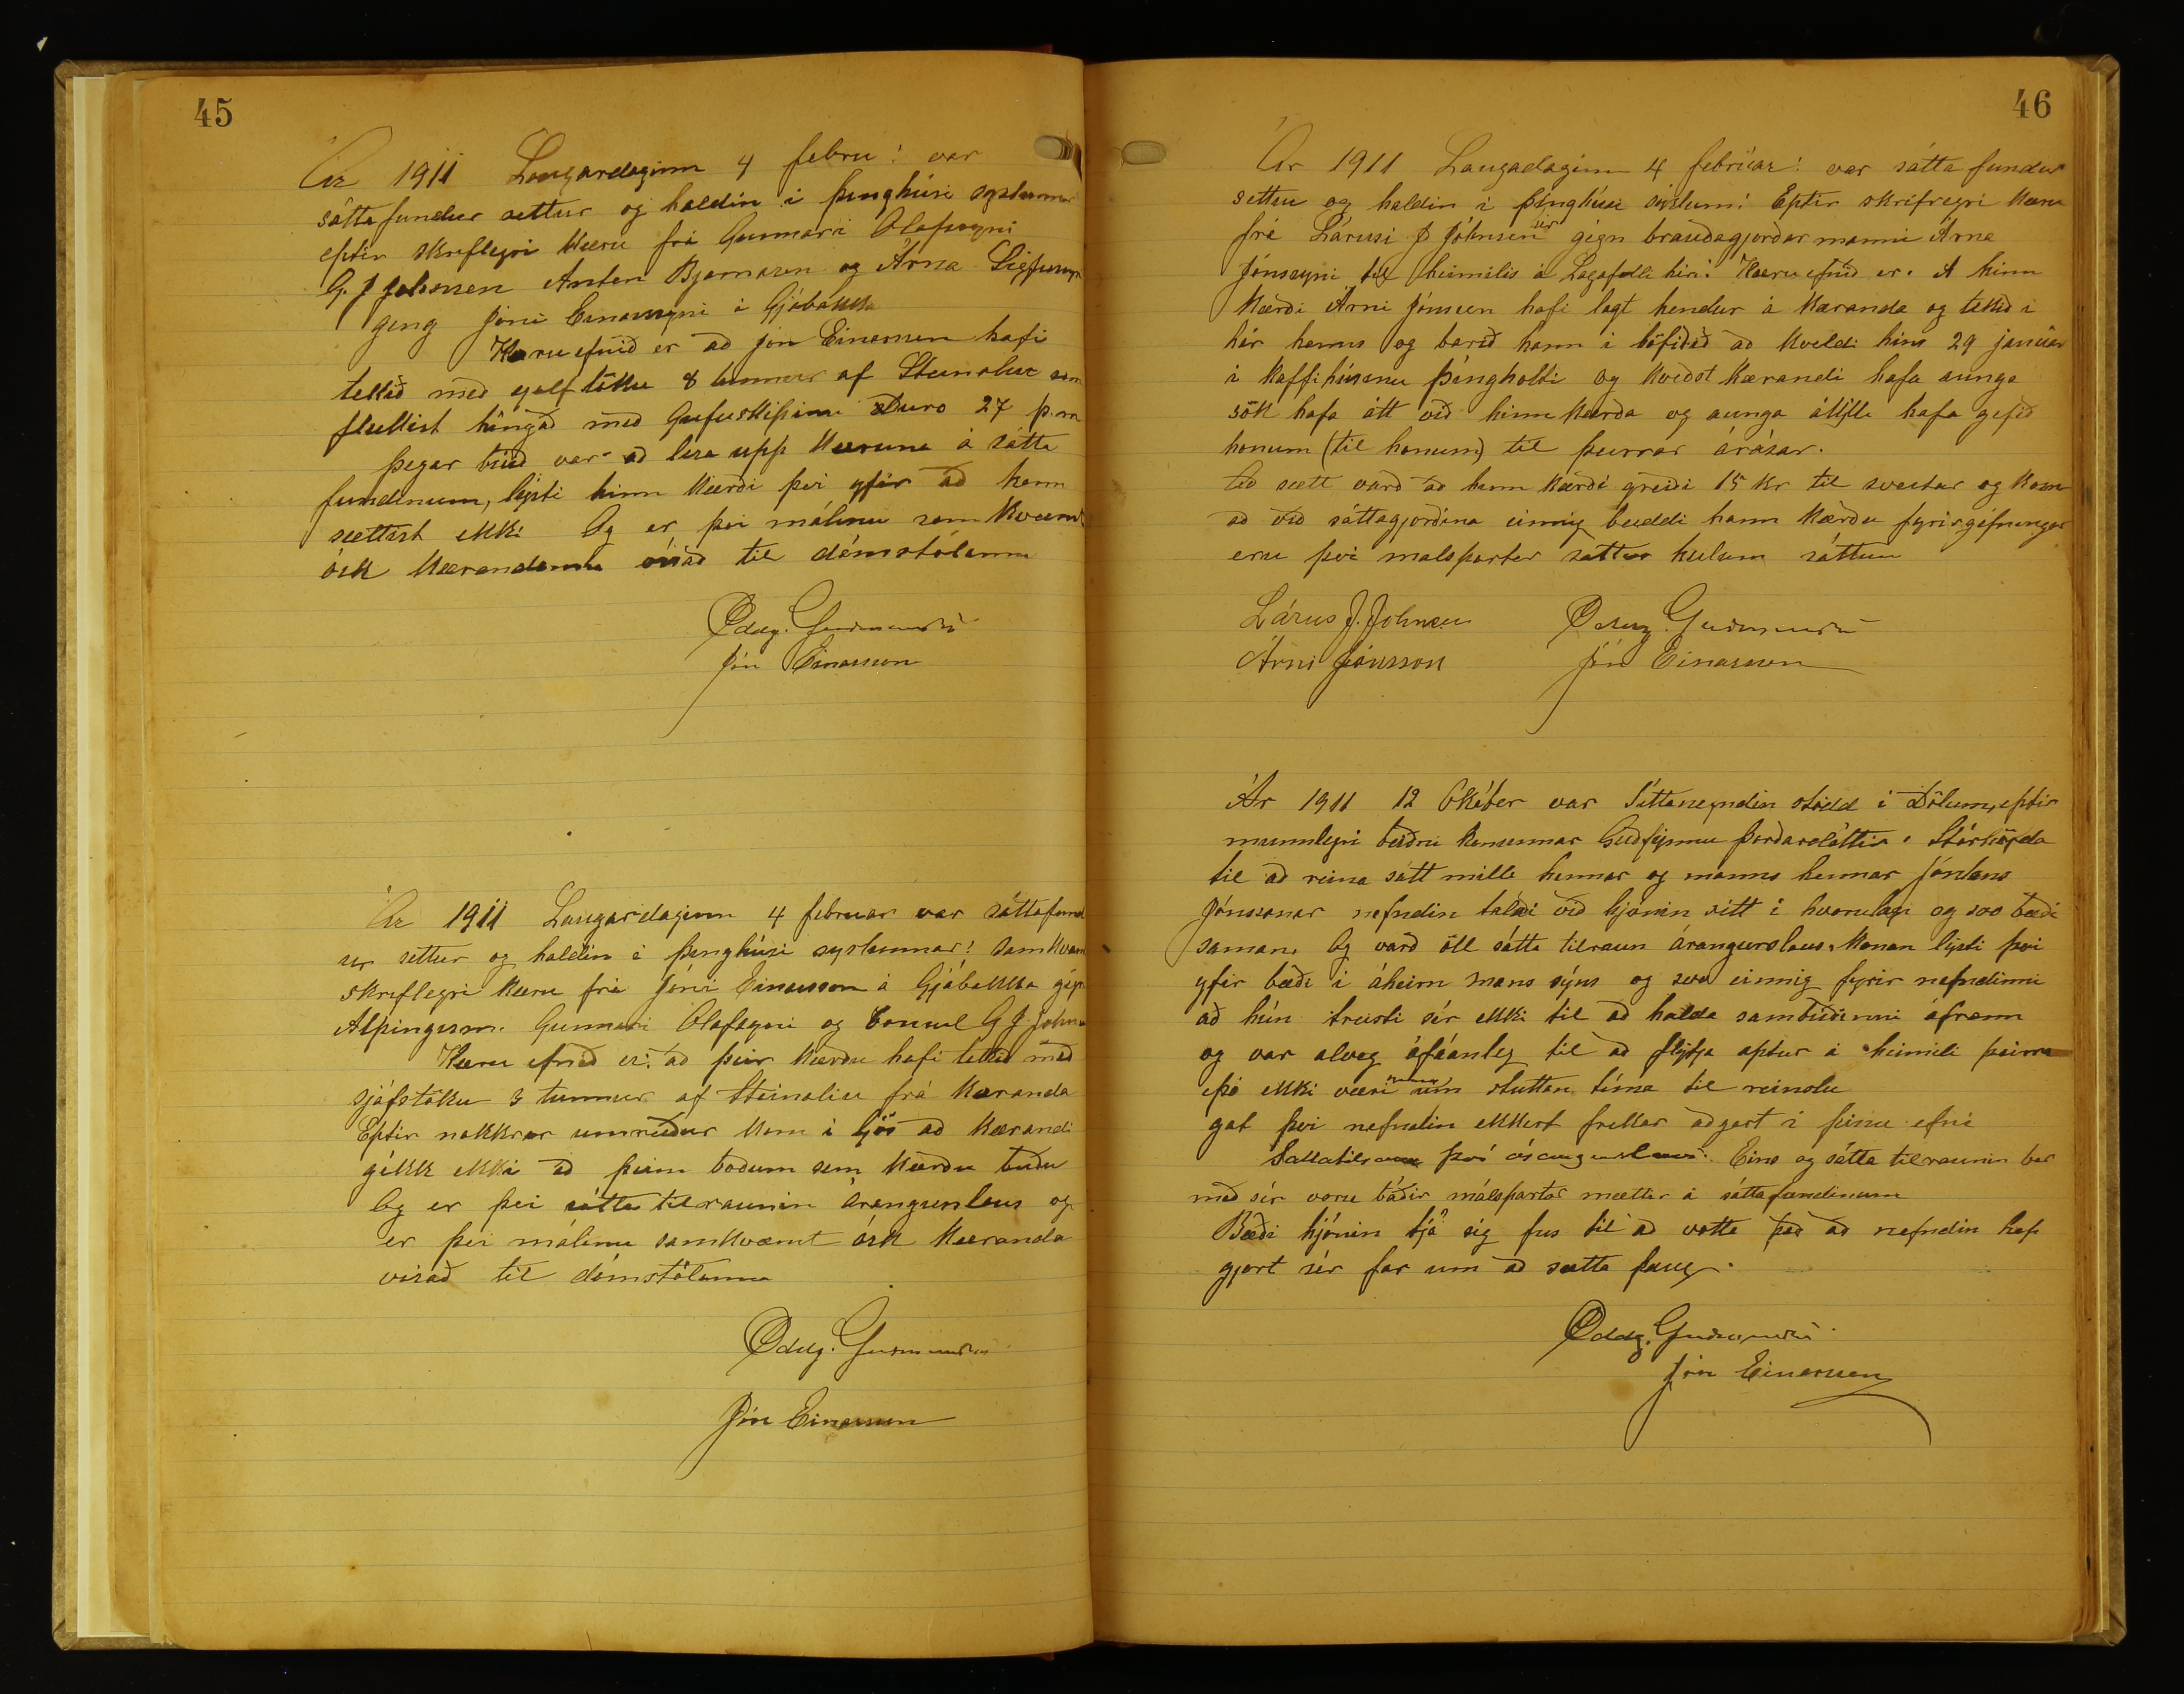 45
Ár 1911 Laugardaginn 4 febru: var
sáttafundur settur og haldin i þinghúsi syslunnar
eptir skriflegri kæru frá Gunnari Olafssyni
G. J Johnsen Anton Bjarnasen og Árna Sigfussyni
geng Jóni Einarssyni á Gjábakka
Kæruefnið er að jón Einarsson hafi
tekið með sjalftöku 8 tunnur af Steinoliu sem
fluttist hingað með Gufuskipinu Duro 27 þ.m
þegar búið var að lesa upp kæruna á sátta
fundinum, lýsti hinn kærði því yfir að hann
sættist ekki Og er því málinu samkvæmt
ósk kærandanna vísað til dómstólanna
Oddg. Guðmundss
Jón Einarsson
Ár 1911 Laugardaginn 4 februar var sáttafund
ur settur og haldin i þinghúsi syslunnar: samkvæm
skriflegri kæru frá Jóni Einarsson á Gjábakka gegn
Alþingism. Gunnari Olafssyni og Consul G J. Johns
Kæru efnið er: að þeir kærðu hafi tekið með
sjáfstöku 3 tunnur af Steinoliu frá kæranda
Eptir nokkrar umræður kom i ljós að kærandi
gékk ekki að þeim boðum sem kærðu buðu
Og er því sátta tilraunin árangurslaus og
er því málinu samkvæmt ósk kæranda
visað til dómstólanna
Oddg. Guðmundss
Jón Einarsson
46
Ár 1911 Laugadaginn 4 februar: var sátta fundur
settur og haldin i þinghúsi syslunn: Eptir skriflegri kæru
frá Lárusi J Jóhnsen gégn brauðagjorðar manni Árna
Jónssyni til heimilis á Lagafelli hér: Kæru efnið er. A hinn
kærði Árni Jónsson hafi lagt hendur á kæranda og tekið i
hár hanns og barið hann i höfiðið að kveldi hins 29 januar
i kaffihúsinu þingholti og kveðst kærandi hafa aunga
sök hafa átt við hinn kærða og aunga átillu hafa gefið
honum (til honum) til þeirrar árásar.
Að sætt varð að hinn kærði greiði 15 kr til sveitar og kom
að við sáttagjorðina einnig beiddi hann kærðu fyrirgefningar
eru því malspartar sattir heilum sáttum
Lárus J. Johnsen Oddg. Guðmundss
Árni Jónsson Jón Einarsson
Ár 1911 12 Október var Sáttanefndin stödd i Dölum, eptir
munnlegri beiðni konunnar Guðfinnu þorðardóttir. Stórhöfða
til að reina sátt milli hennar og manns hennar Jónatans
Jónssonar nefndin talaði við hjónin sitt i hvorulagi og svo bæði
saman. Og varð öll sátta tilraun árangurslaus. Konan lýsti því
yfir bæði i áheirn mans sýns og svo einnig fyrir nefndinni
að hún treisti sér ekki til að halda sambúðinni áframm
og var alveg ófáanleg til að flytja aptur á heimili þeirra
þó ekki væri nema um stuttan tíma til reinslu
gat því nefndin ekkert frekar aðgert i þessu efni
Sáttatilraun því árangurslaus. Eins og sátta tilraunin ber
með sér voru báðir málspartar mættir á sáttafundinum
Bæði hjónin tjá sig fus til að votta það að nefndin hafi
gjort sér far um að sætta þaug.
Oddg. Guðmundss
Jón Einarsson